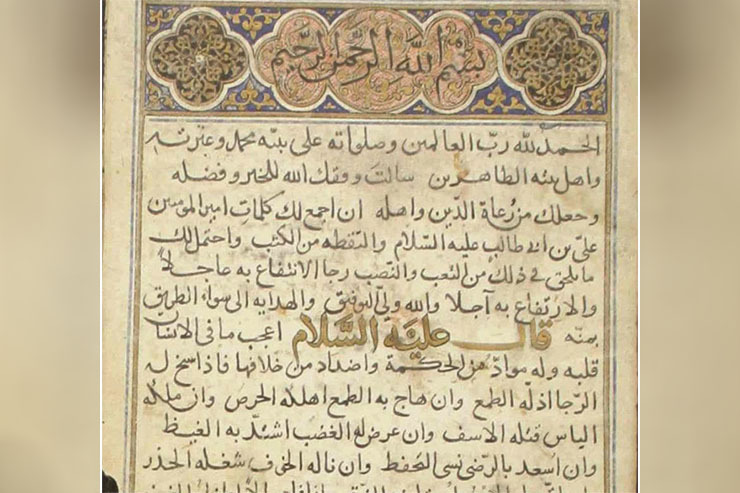 بسم الله الرحمن الرحيم
الحمد لله رب العالمين وصلواته على نبيه محمد وعترته
واهل بيته الطاهرين سالت وفقك الله للخير وفضله
وجعلك من رعاة الدين واهله ان اجمع لك كلمات امير المومنين
على بن ابى طالب عليه السلام والتقطه من الكتب واحتمل لك
ما يلحقى فى ذلك من التعب والنصب رجا الانتفاع به عاجلا
والارتفاع به آجلا والله ولى التوفيق والهدايه الى سواء الطريق
بمنه قال عليه السلام اعجب ما فى الانسان
قلبه وله مواد من الحكمة واضداد من خلافها فاذا سنح له
الرجا اذله الطمع وان هاج به الطمع اهلكه الحرص وان ملكه
الياس قتله الاسف وان عرض له الغضب اشتد به الغيظ
وان اسعد بالرضى نسى التحفظ وان ناله الخوف شغله الحذر